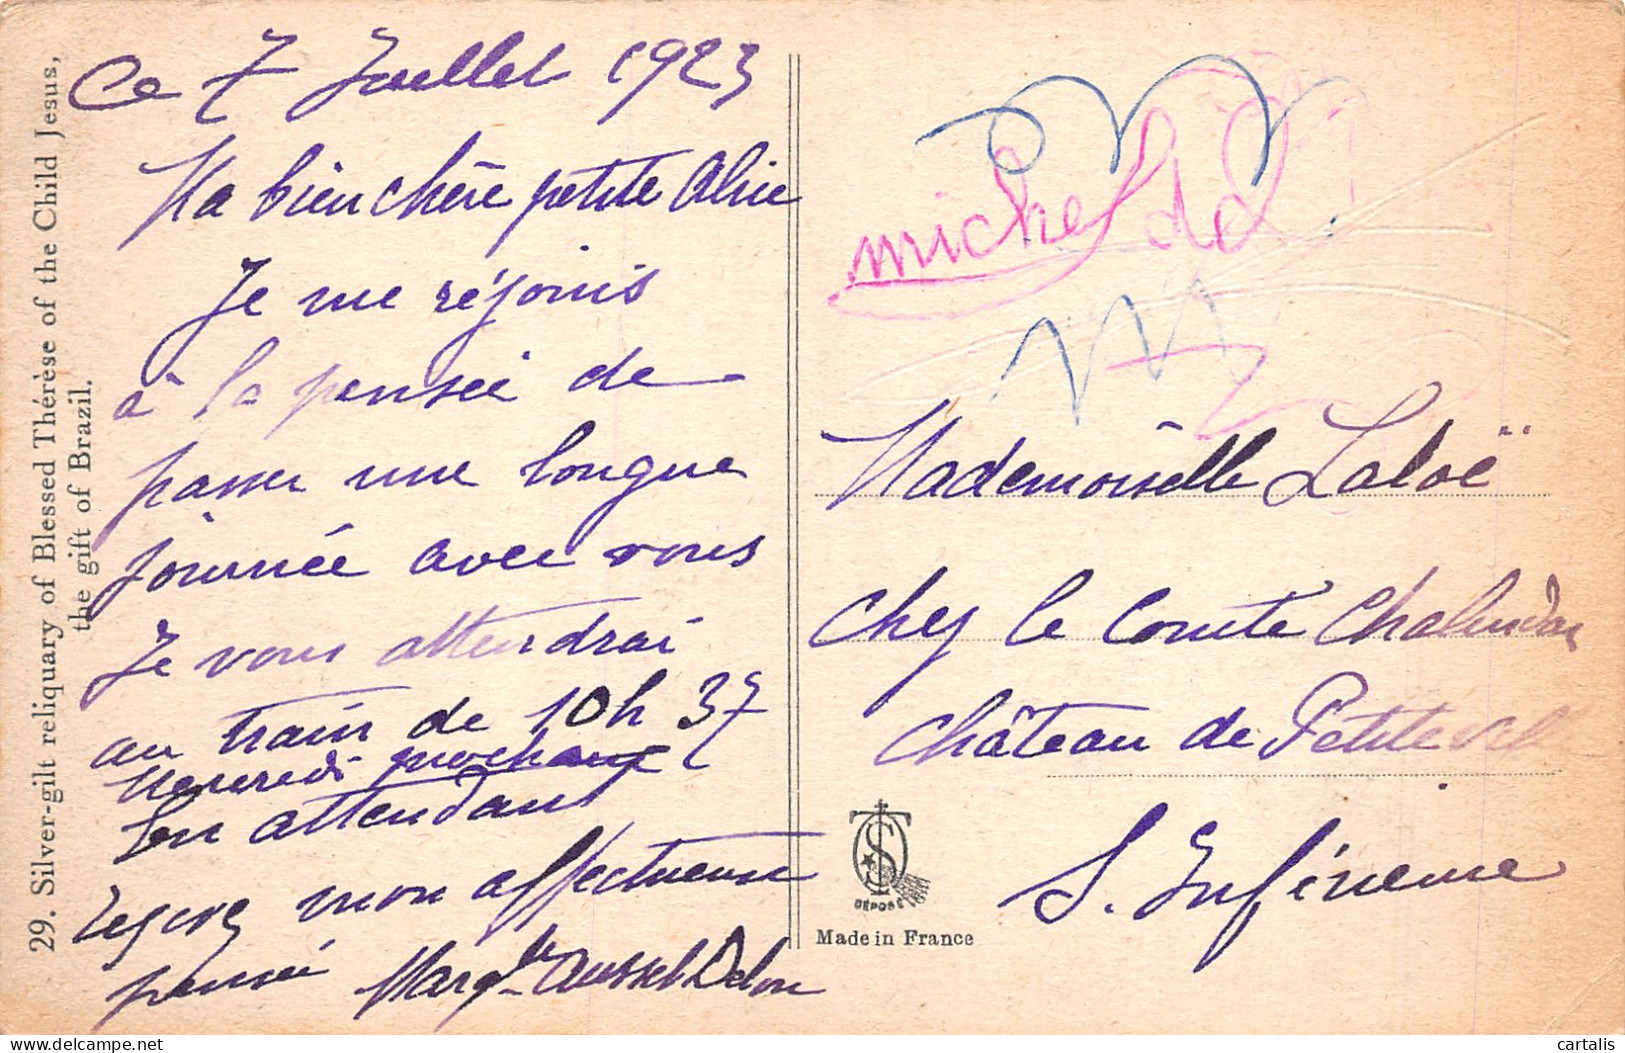 29. Silver-gilt reliquary of Blessed Thérèse of the Child Jesus,
the gift of Brazil.
Ce 7 Juillet 1923
Ma bien chère petite Alice
Je me réjouis
à la pensée de
passer une longue
journée avec vous
Je vous attendrai
au train de 10h 37
Mercredi prochain
En attendant
recevez mon affectueuse
pensée Marq
michel
Mademoiselle Laloë
chez le Comte Chalendar
château de Petiteville
S. Inférieure
DÉPOSÉ
Made in France
cartalis